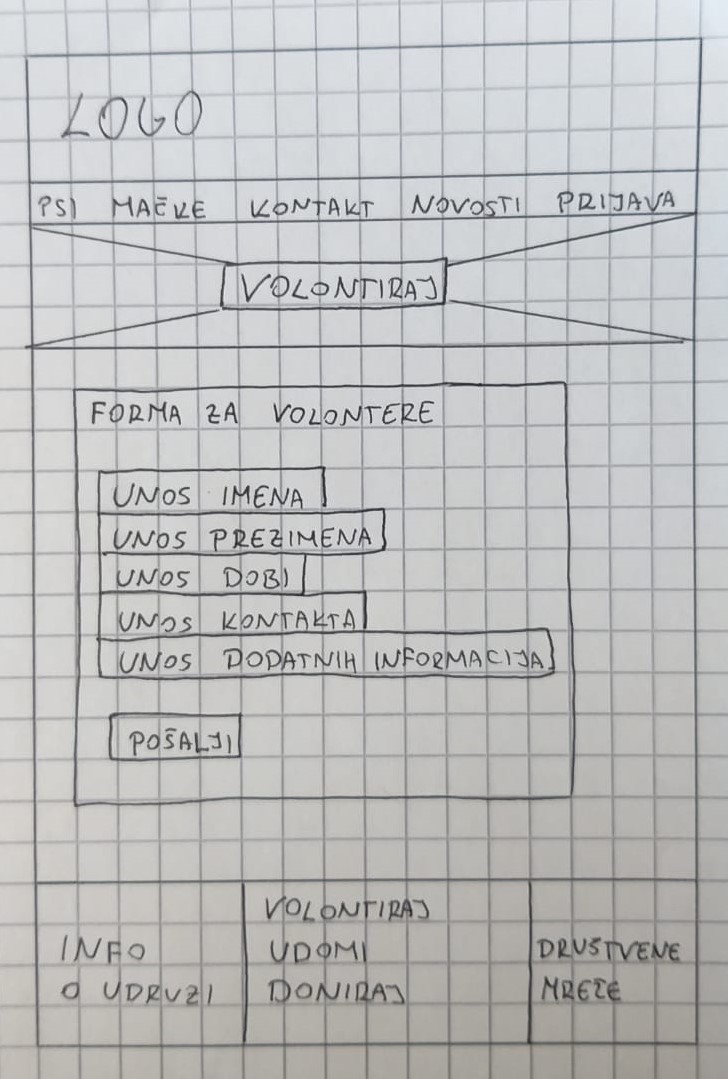 LOGO
PSI MAČKE KONTAKT NOVOSTI PRIJAVA
VOLONTIRAJ
FORMA ZA VOLONTERE
UNOS IMENA
UNOS PREZIMENA
UNOS DOBI
UNOS KONTAKTA
UNOS DODATNIH INFORMACIJA
POŠALJI
INFO
O UDRUZI
VOLONTIRAJ
UDOMI
DONIRAJ
DRUŠTVENE
MREŽE